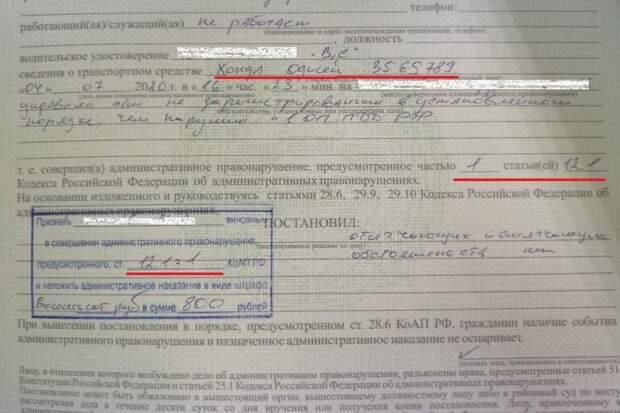 телефон:
работающий(ая)/служащий(ая) не работает
(наименование и адрес местонахождения организации, телефон)
должность
водительское удостоверение В,С
сведения о транспортном средстве Хонда Одисей
«04» 07 2020 г. в «16» час. «23» мин. на
управлял а/м не зарегистрированным в установленном
порядке, чем нарушил ОП ПДД РФ
т. е. совершил(а) административное правонарушение, предусмотренное частью 1 статьи(ей) 12.1
Кодекса Российской Федерации об административных правонарушениях.
На основании изложенного и руководствуясь статьями 28.6, 29.9, 29.10 Кодекса Российской Федерации об
административных правонарушениях,
ПОСТАНОВИЛ:
Признать виновным
в совершении административного правонарушения,
предусмотренного, ст. 12.1 ч 1 КоАП РФ
и наложить административное наказание в виде штрафа
Восемьсот руб в сумме 800 рублей
отягчающих и смягчающих
обстоятельств нет
При вынесении постановления в порядке, предусмотренном ст. 28.6 КоАП РФ, гражданин наличие события
административного правонарушения и назначенное административное наказание не оспаривает.
Лицу, в отношении которого возбуждено дело об административном правонарушении, разъяснены права, предусмотренные статьей 51
Конституции Российской Федерации и статьей 25.1 Кодекса Российской Федерации об административных правонарушениях.
Постановление может быть обжаловано в вышестоящий орган, вышестоящему должностному лицу либо в районный суд по месту
рассмотрения дела в течение десяти суток со дня вручения или получения копии постановления.